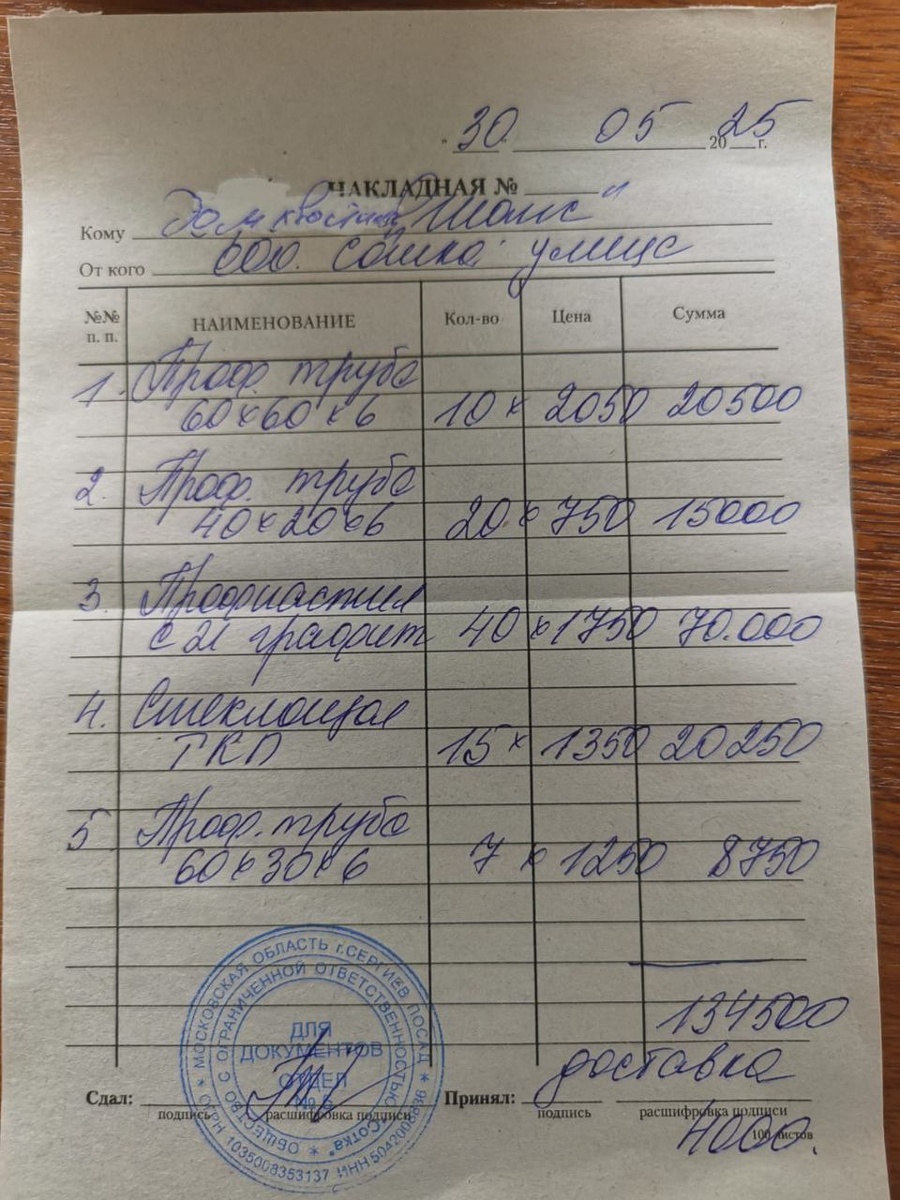 " 30 " 05 2025 г.
НАКЛАДНАЯ №
Кому Дом хвостиков "Шанс"
От кого ООО. Сотка улица
№№ п. п. НАИМЕНОВАНИЕ Кол-во Цена Сумма
1. Проф. труба
60х60х6 10 х 2050 20500
2. Проф. труба
40х20х6 20 х 750 15000
3. Профнастил
с 21 графит 40 х 1750 70.000
4. Стекло
ГКЛ 15 х 1350 20250
5 Проф. труба
60х30х6 7 х 1250 8750
134500
доставка
Сдал: Принял:
подпись расшифровка подписи подпись расшифровка подписи
4000.
100 листов
* МОСКОВСКАЯ ОБЛАСТЬ г.СЕРГИЕВ ПОСАД *
ОГРН 1035008353137 ИНН 5042008836
ОБЩЕСТВО С ОГРАНИЧЕННОЙ ОТВЕТСТВЕННОСТЬЮ "Сотка" *
ДЛЯ
ДОКУМЕНТОВ
ОТДЕЛ
№ 5